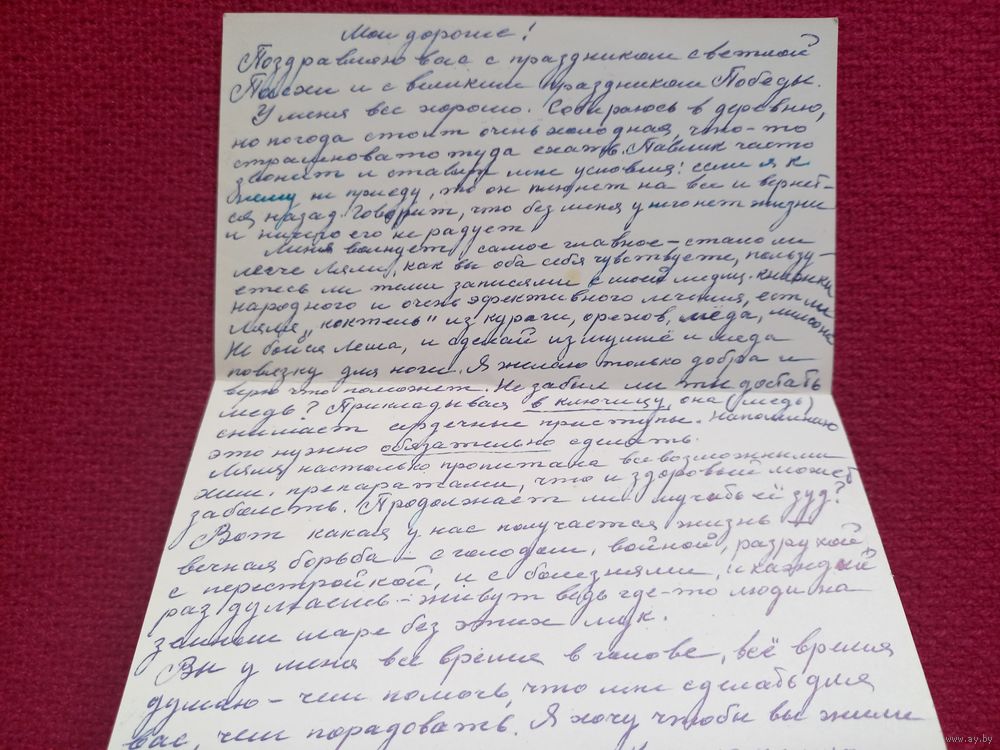 Мои дорогие!
Поздравляю вас с праздником светлой
Пасхи и с великим праздником Победы.
У меня все хорошо. Собираюсь в деревню,
но погода стоит очень холодная, что-то
страшновато туда ехать. Павлик часто
звонит и ставит мне условия: если я к
нему не приеду, то он плюнет на все и вернет-
ся назад. Говорит, что без меня у него нет жизни
и ничего его не радует.
Меня волнует самое главное – стало ли
легче Ляле, как вы оба себя чувствуете, пользу-
етесь ли теми записями с моей медиц. книжки
народного и очень эфективного лечения, ест ли
Ляля „коктель" из кураги, орехов, мёда, лимона
Не бойся Леша, и сделай из мумиё и меда
повязку для ноги. Я желаю только добра и
верю что поможет. Не забыл ли ты достать
медь? Прикладывая в ключицу, она (медь)
снимает сердечные приступы. Напоминаю
это нужно обязательно сделать.
Ляля настолько пропитана всевозможными
хим. препаратами, что и здоровый может
заболеть. Продолжает ли мучать её зуд?
Вот какая у нас получается жизнь –
вечная борьба – с голодом, войной, разрухой,
с перестройкой, и с болезнями, и каждый
раз думаешь – живут ведь где-то люди на
земном шаре без этих мук.
Вы у меня все время в голове, всё время
думаю – чем помочь, что мне сделать для
вас, чем порадовать. Я хочу чтобы вы жили
www.ay.by